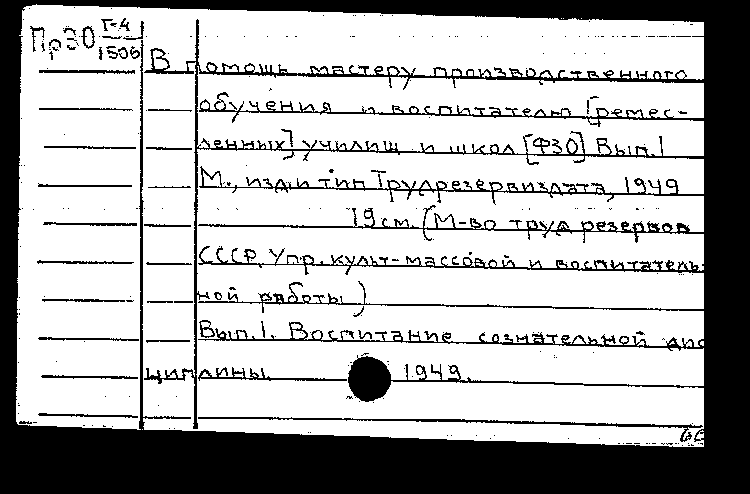 Пр30 Г-4
1506
В помощь мастеру производственного
обучения и воспитателю [ремес-
ленных] училищ и школ [ФЗО] Вып.1
М., изд. и тип Трудрезервиздата, 1949
19 см. (М-во труд резервов
СССР. Упр. культ-массовой и воспитатель
ной работы)
Вып.1. Воспитание сознательной дис
циплины. 1949.